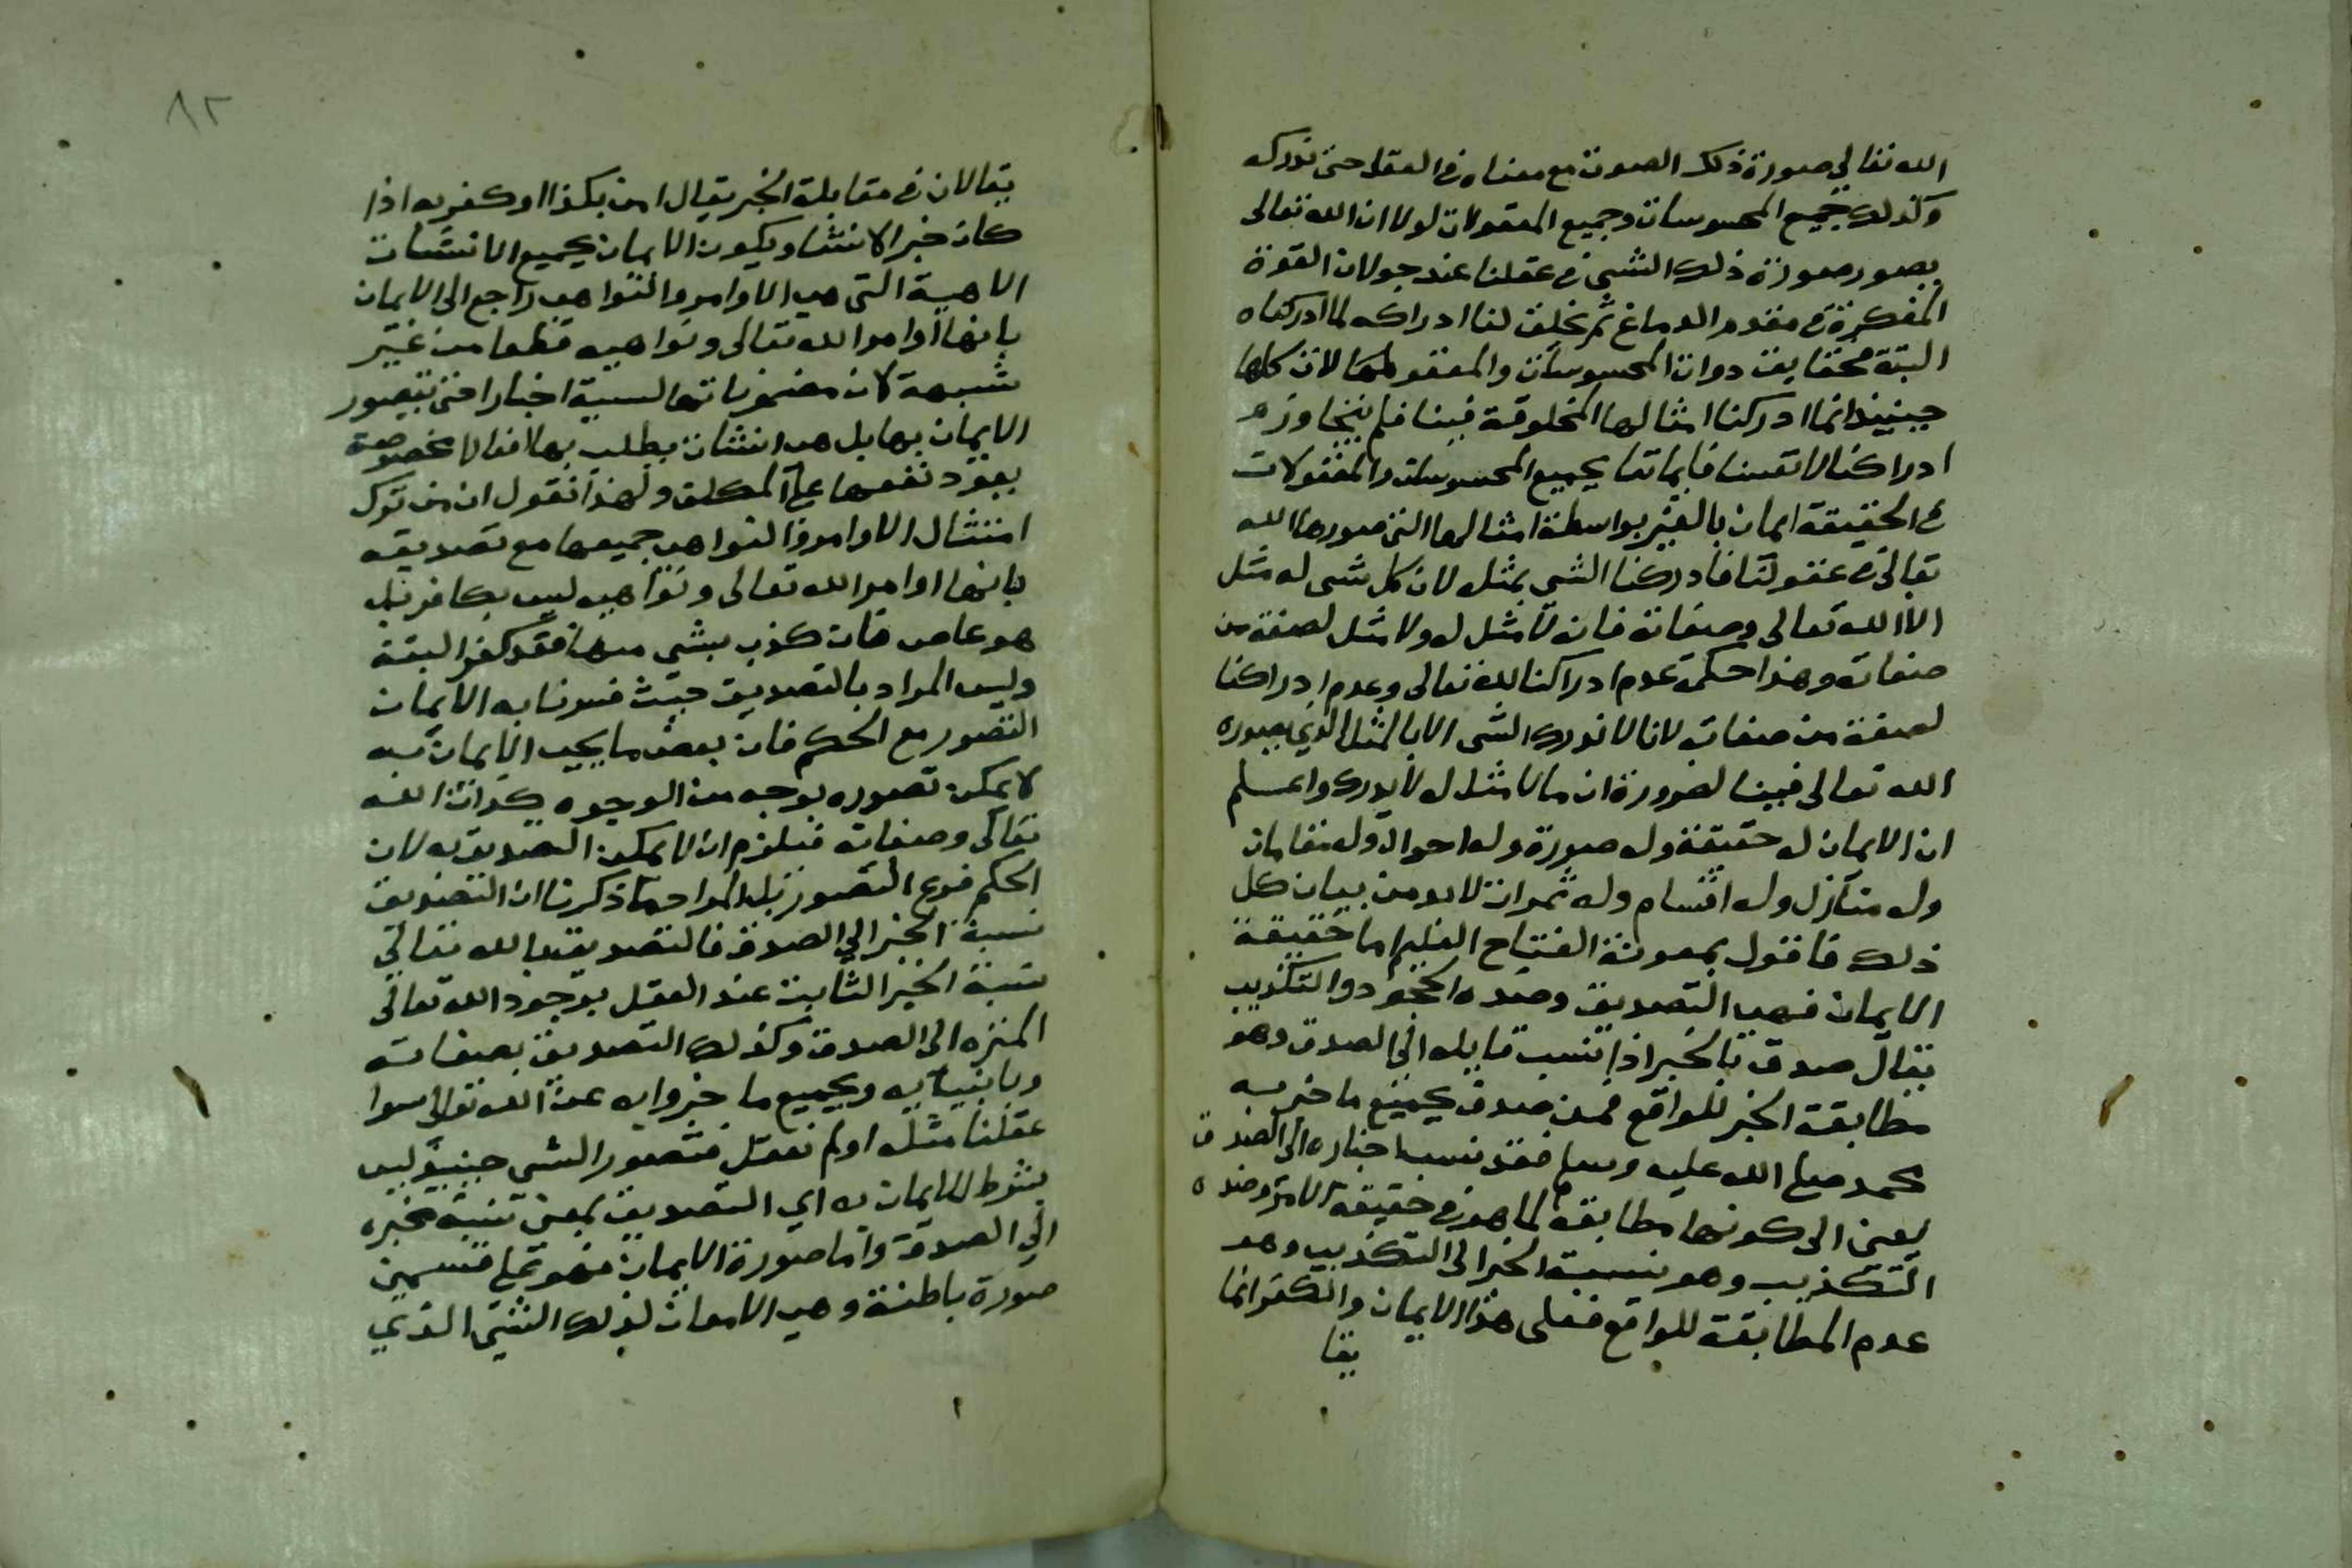 الله تعالى صورة ذلك الصوت مع معناه في العقل حتى ندركه
وكذلك جميع المحسوسات وجميع المعقولات لولا ان الله تعالى
يصور صورة ذلك الشي في عقلنا عند جولان القوة
المفكرة في مقدم الدماغ ثم يخلق لنا ادراكه لما ادركناه
البتة فحقايق ذوات المحسوسات والمعقولات كلها
حينيذ انما ادركنا امثالها المخلوقة فينا فلم يتجاوز
ادراكنا لانفسنا فايماننا بجميع المحسوسات والمعقولات
في الحقيقة ايمان بالغير بواسطة امثالها التي صورها الله
تعالى في عقولنا فادركنا الشي بمثله لان كل شي له مثل
الا الله تعالى وصفاته فانه لا مثل له ولا مثل لصفة من
صفاته وهذا حكمة عدم ادراكنا لله تعالى وعدم ادراكنا
لصفة من صفاته لانا لا ندرك الشي الا بالمثل الذي يصوره
الله تعالى فينا لضرورة ان ما لا مثل له لا يدرك واعلم
ان الايمان له حقيقة وله صورة وله احوال وله مقامات
وله منازل وله اقسام وله ثمرات لابد من بيان كل
ذلك فاقول بمعونة الفتاح العليم اما حقيقة
الايمان فهي التصديق وضده الجحود والتكذيب
يقال صدق بالخبر اذا نسب قايله الى الصدق وهو
مطابقة الخبر للواقع فمن صدق بجميع ما اخبر به
محمد صلى الله عليه وسلم فقد نسب اخباره الى الصدق
يعني الى كونها مطابقة لما هو في حقيقة الامر وضده
التكذيب وهو نسبة الخبر الى التكذيب وهو
عدم المطابقة للواقع فعلى هذا الايمان والكفر انما
يقا
٨٢
يقالان في مقابلة الخبر يقال امن بكذا وكفر به اذا
كان خبرا لا انشا ويكون الايمان بجميع الانشات
الالهية التي هي الاوامر والنواهي راجع الى الايمان
بانها اوامر الله تعالى ونواهيه قطعا من غير
شبهة لان مضموناتها ليست اخبارا حتى يتصور
الايمان بها بل هي انشات يطلب بها افعالا مخصوصة
يعود نفعها على المكلف ولهذا نقول ان من ترك
امتثال الاوامر والنواهي جميعها مع تصديقه
بانها اوامر الله تعالى ونواهيه ليس بكافر بل
هو عاص فان كذب بشي منها فقد كفر البتة
وليس المراد بالتصديق حيث فسرنا به الايمان
التصور مع الحكم فان بعض ما يجب الايمان به
لا يمكن تصوره بوجه من الوجوه كذات الله
تعالى وصفاته فيلزم ان لا يمكن التصديق به لان
الحكم فرع التصور بل المراد ما ذكرنا ان التصديق
نسبة الخبر الى الصدق فالتصديق بالله تعالى
نسبة الخبر الثابت عند العقل بوجود الله تعالى
المنزه الى الصدق وكذلك التصديق بصفاته
وبانبيايه وبجميع ما اخبروا به عن الله تعالى سوا
عقلنا مثله او لم نعقل فتصور الشي حينيذ ليس
بشرط للايمان به اي التصديق بمعنى نسبة مخبره
الى الصدق واما صورة الايمان فهو على قسمين
صورة باطنة وهي الاذعان لذلك الشي الذي